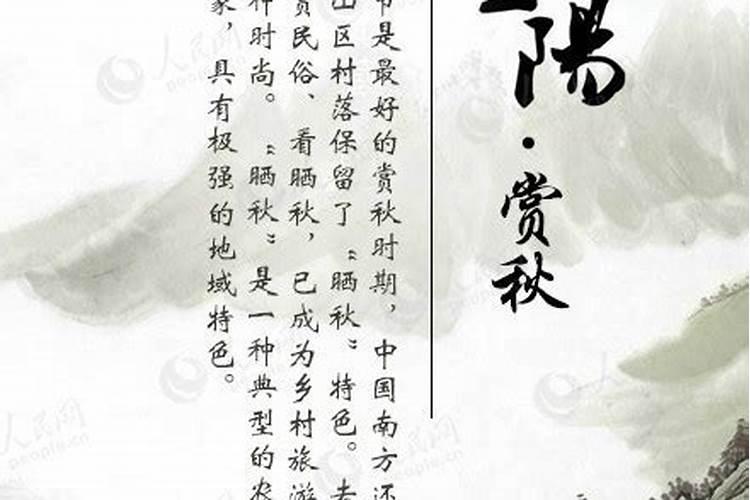 陽·赏秋
节是最好的赏秋时期，中国南方还
山区村落保留了“晒秋”特色。去
赏民俗、看晒秋，已成为乡村旅游
种时尚。“晒秋”是一种典型的农
家，具有极强的地域特色。
人民网
people.cn
人民网
people.cn